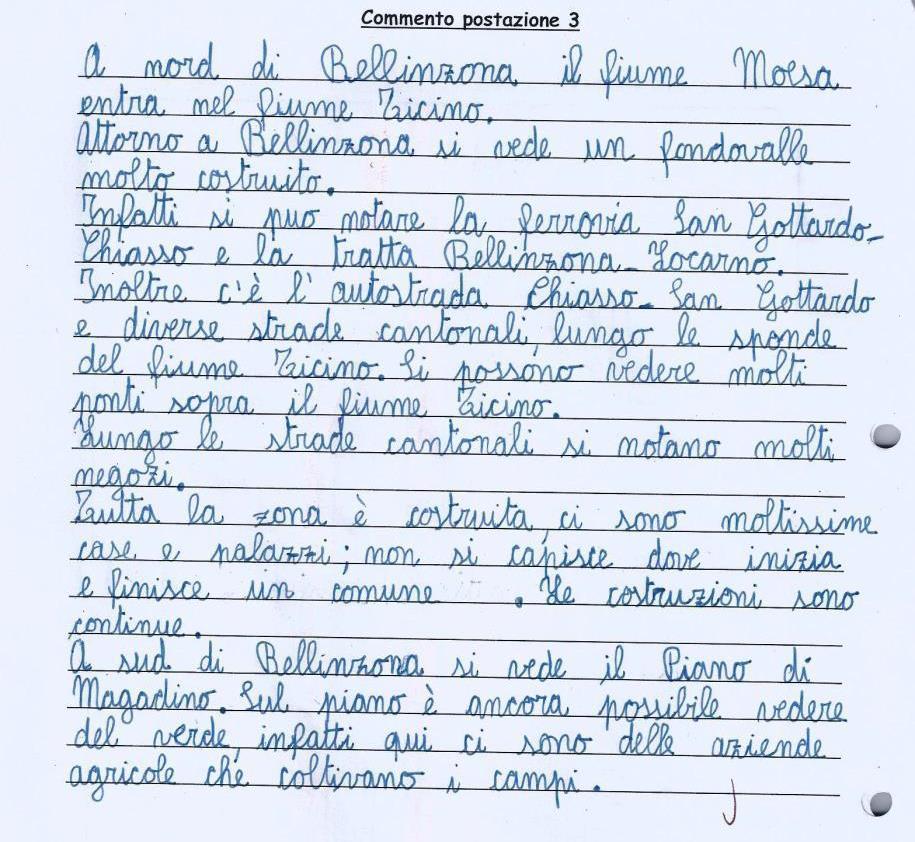 Commento postazione 3
A nord di Bellinzona il fiume Moesa
entra nel fiume Ticino.
Attorno a Bellinzona si vede un fondovalle
molto costruito.
Infatti si può notare la ferrovia San Gottardo-
Chiasso e la tratta Bellinzona-Locarno.
Inoltre c'è l'autostrada Chiasso-San Gottardo
e diverse strade cantonali, lungo le sponde
del fiume Ticino. Si possono vedere molti
ponti sopra il fiume Ticino.
Lungo le strade cantonali si notano molti
negozi.
Tutta la zona è costruita, ci sono moltissime
case e palazzi; non si capisce dove inizia
e finisce un comune. Le costruzioni sono
continue.
A sud di Bellinzona si vede il Piano di
Magadino. Sul piano è ancora possibile vedere
del verde, infatti qui ci sono delle aziende
agricole che coltivano i campi.